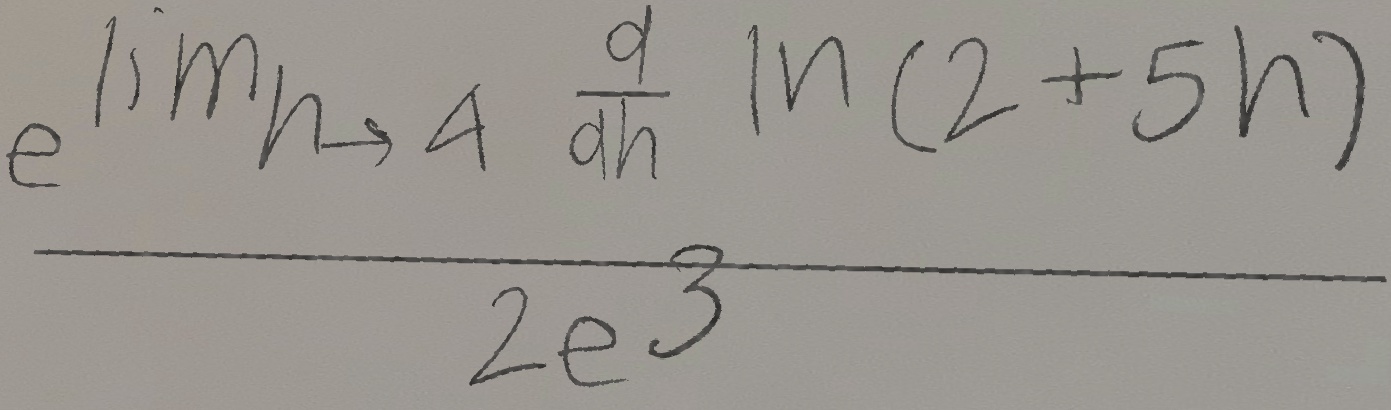 e^{lim_{h→4} \frac{d}{dh} ln(2+5h)}
2e^3